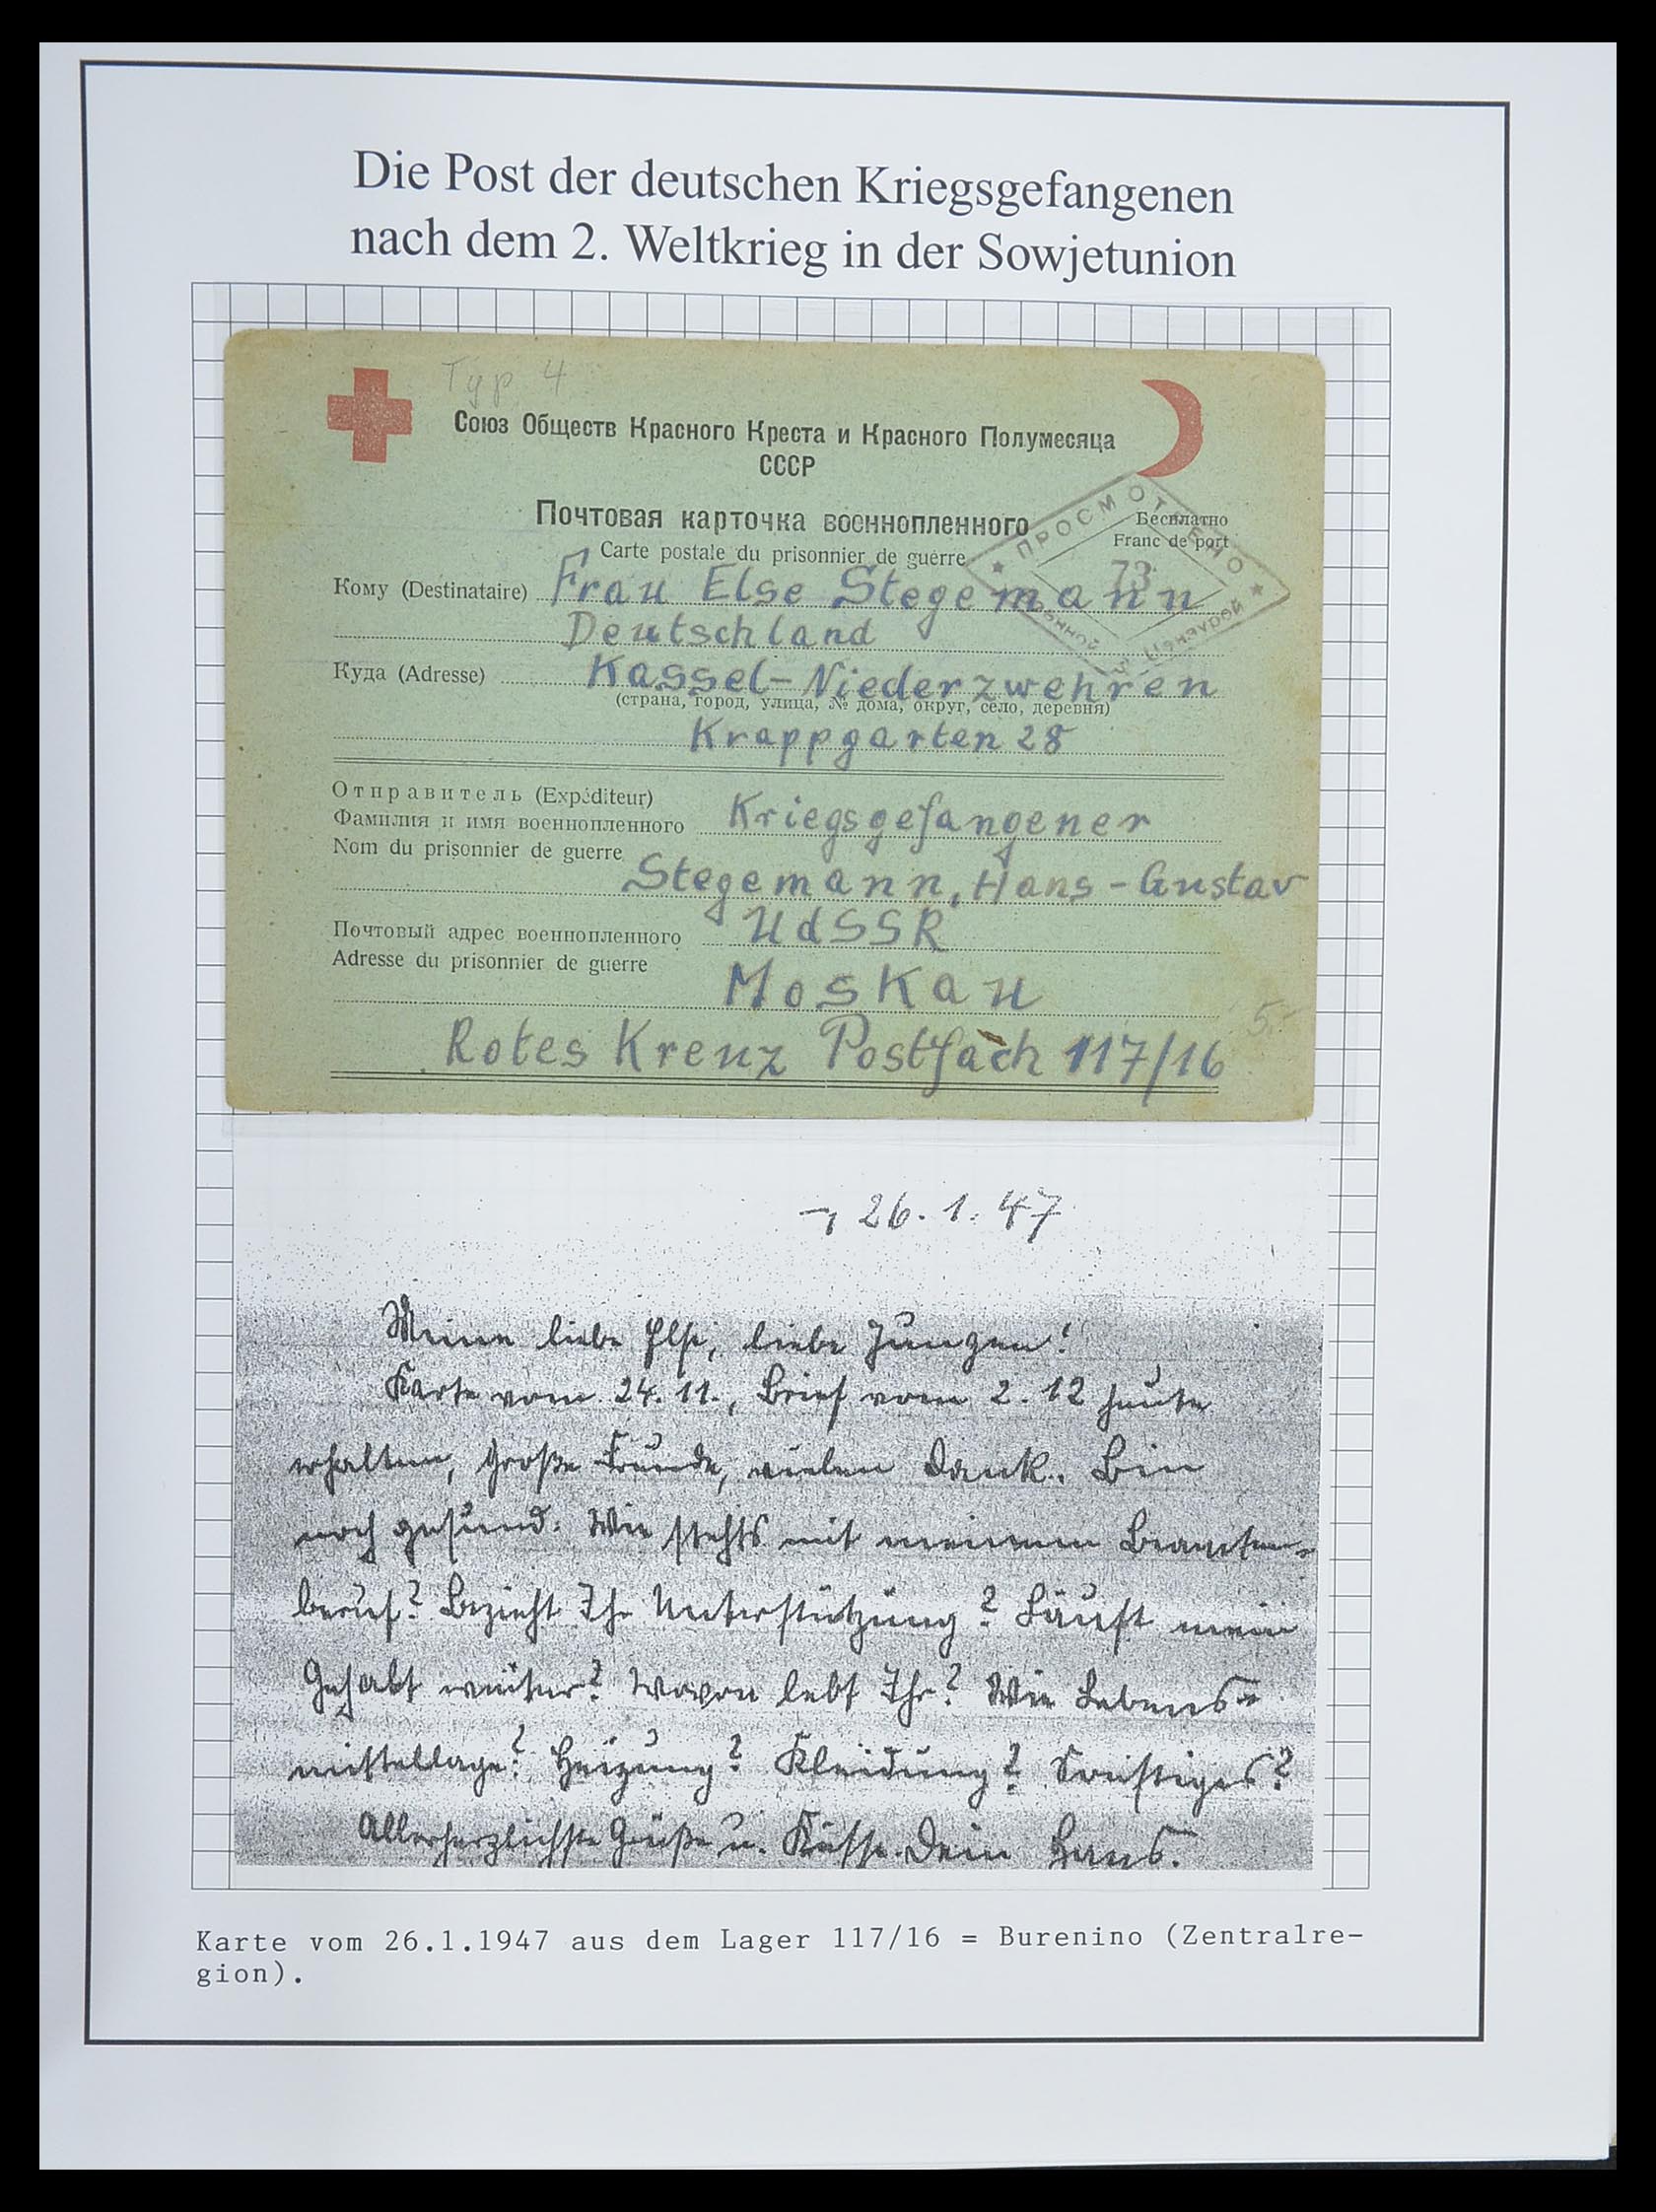 Die Post der deutschen Kriegsgefangenen
nach dem 2. Weltkrieg in der Sowjetunion
Typ 4
Союз Обществ Красного Креста и Красного Полумесяца
СССР
Почтовая карточка военнопленного
Carte postale du prisonnier de guerre
Бесплатно
Franc de port
ПРОСМОТРЕНО
73
Военной Цензурой
Кому (Destinataire) Frau Else Stegemann
Deutschland
Куда (Adresse) Kassel-Niederzwehren
(страна, город, улица, № дома, округ, село, деревня)
Krappgarten 28
Отправитель (Expéditeur)
Фамилия и имя военнопленного Kriegsgefangener
Nom du prisonnier de guerre
Stegemann, Hans-Gustav
Почтовый адрес военнопленного UdSSR
Adresse du prisonnier de guerre
Moskau
5.-
Rotes Kreuz Postfach 117/16
26.1.47
Meine liebe Else, liebe Jungen!
Karte vom 24.11., Brief vom 2.12 heute
erhalten, große Freude, vielen Dank. Bin
noch gesund. Wie stehts mit meinem Beamten-
beruf? Bezieht Ihr Unterstützung? Läuft mein
Gehalt weiter? Wovon lebt Ihr? Wie Lebens-
mittellage? Heizung? Kleidung? Sonstiges?
Allerherzlichste Grüße u. Küsse. Dein Hans.
Karte vom 26.1.1947 aus dem Lager 117/16 = Burenino (Zentralre-
gion).